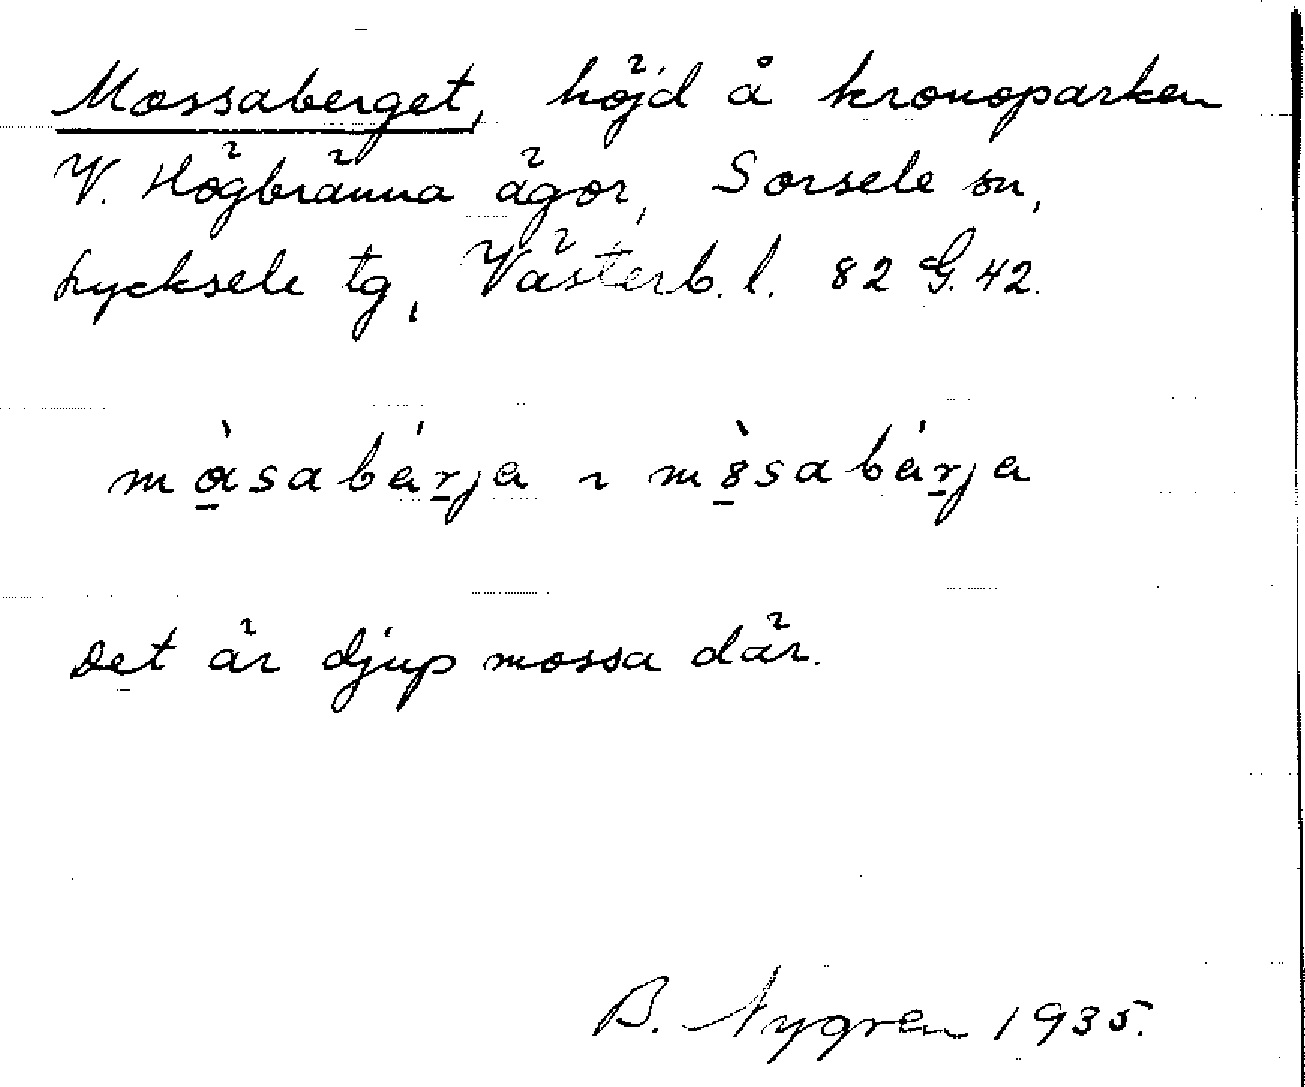 Mossaberget, höjd å kronoparken
V. Högbränna ägor, Sorsele sn,
Lycksele tg, Västerb. l. 82 G. 42.
mɑ̀sabárja ~ m8̀sabárja
Det är djup mossa där.
B. Nygren 1935.